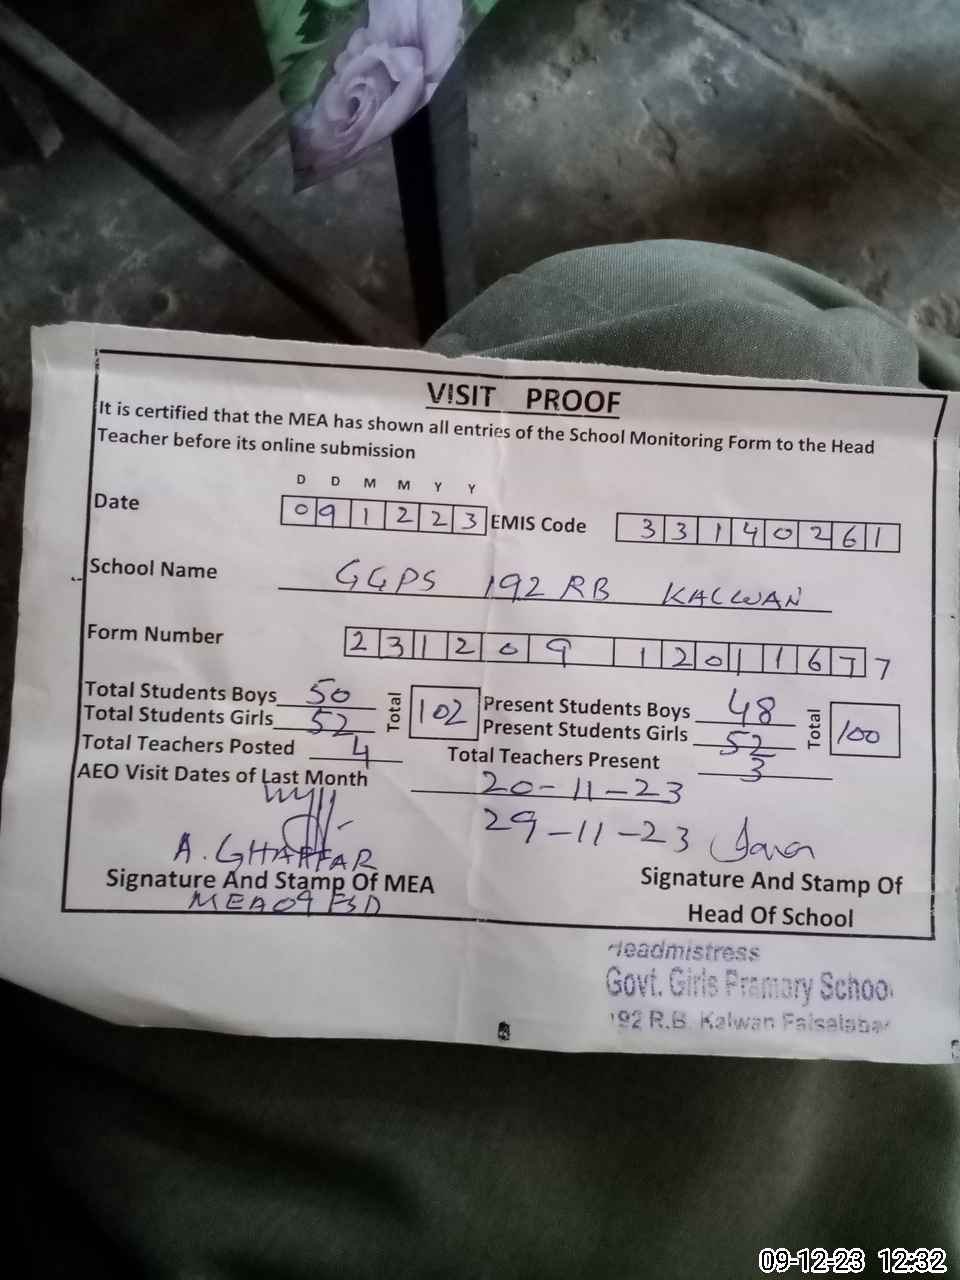 VISIT PROOF
It is certified that the MEA has shown all entries of the School Monitoring Form to the Head
Teacher before its online submission
D D M M Y Y
Date 091223 EMIS Code 33140261
School Name GGPS 192 RB KALWAN
Form Number 231209 12011677
Total Students Boys 50 Total 102 Present Students Boys 48 Total 100
Total Students Girls 52 Present Students Girls 52
Total Teachers Posted 4 Total Teachers Present 3
AEO Visit Dates of Last Month 20-11-23
29-11-23
A. GHAFFAR
Signature And Stamp Of MEA Signature And Stamp Of
MEA09 FSD Head Of School
Headmistress
Govt. Girls Pramary School
192 R.B. Kalwan Faisalabad
09-12-23 12:32